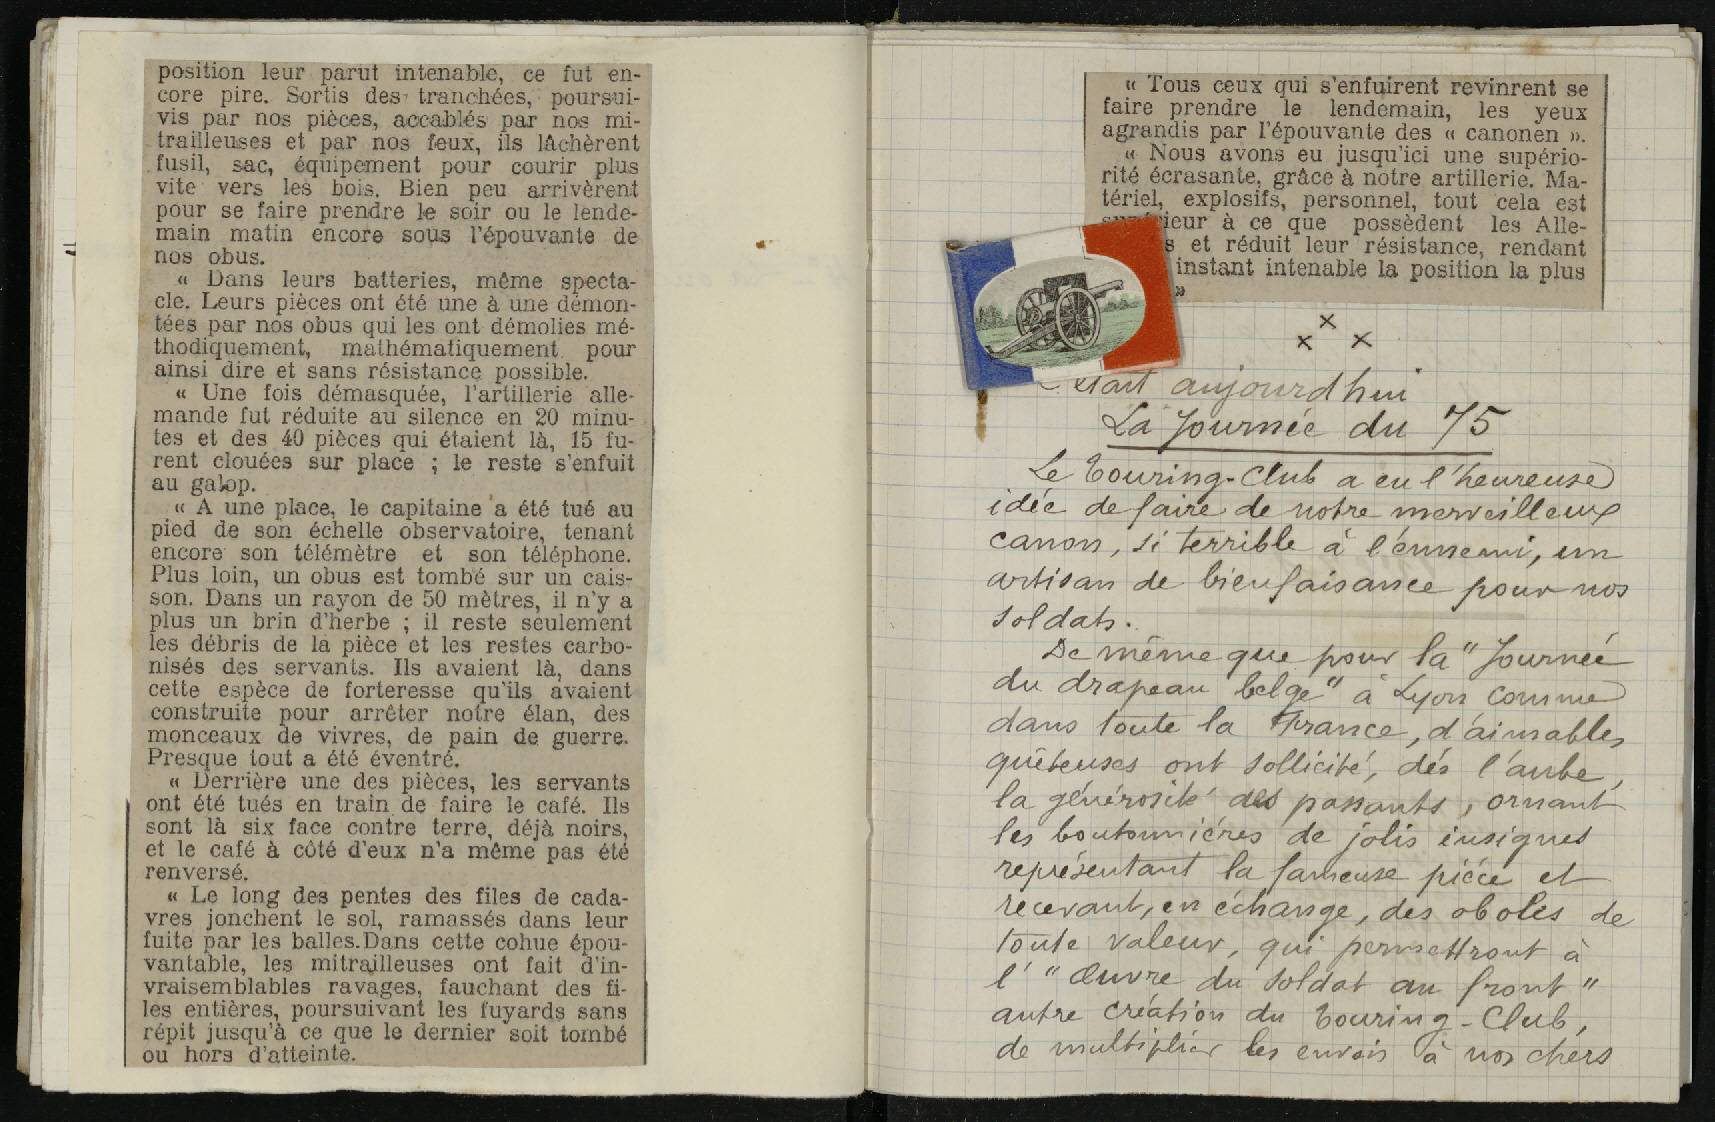 position leur parut intenable, ce fut en-
core pire. Sortis des tranchées, poursui-
vis par nos pièces, accablés par nos mi-
trailleuses et par nos feux, ils lâchèrent
fusil, sac, équipement pour courir plus
vite vers les bois. Bien peu arrivèrent
pour se faire prendre le soir ou le lende-
main matin encore sous l'épouvante de
nos obus.
« Dans leurs batteries, même specta-
cle. Leurs pièces ont été une à une démon-
tées par nos obus qui les ont démolies mé-
thodiquement, mathématiquement pour
ainsi dire et sans résistance possible.
« Une fois démasquée, l'artillerie alle-
mande fut réduite au silence en 20 minu-
tes et des 40 pièces qui étaient là, 15 fu-
rent clouées sur place ; le reste s'enfuit
au galop.
« A une place, le capitaine a été tué au
pied de son échelle observatoire, tenant
encore son télémètre et son téléphone.
Plus loin, un obus est tombé sur un cais-
son. Dans un rayon de 50 mètres, il n'y a
plus un brin d'herbe ; il reste seulement
les débris de la pièce et les restes carbo-
nisés des servants. Ils avaient là, dans
cette espèce de forteresse qu'ils avaient
construite pour arrêter notre élan, des
monceaux de vivres, de pain de guerre.
Presque tout a été éventré.
« Derrière une des pièces, les servants
ont été tués en train de faire le café. Ils
sont là six face contre terre, déjà noirs,
et le café à côté d'eux n'a même pas été
renversé.
« Le long des pentes des files de cada-
vres jonchent le sol, ramassés dans leur
fuite par les balles. Dans cette cohue épou-
vantable, les mitrailleuses ont fait d'in-
vraisemblables ravages, fauchant des fi-
les entières, poursuivant les fuyards sans
répit jusqu'à ce que le dernier soit tombé
ou hors d'atteinte.
« Tous ceux qui s'enfuirent revinrent se
faire prendre le lendemain, les yeux
agrandis par l'épouvante des « canonen ».
« Nous avons eu jusqu'ici une supério-
rité écrasante, grâce à notre artillerie. Ma-
tériel, explosifs, personnel, tout cela est
supérieur à ce que possèdent les Alle-
s et réduit leur résistance, rendant
instant intenable la position la plus
»
x
x x
était aujourd'hui
La Journée du 75
Le Touring-Club a eu l'heureuse
idée de faire de notre merveilleux
canon, si terrible à l'ennemi, un
artisan de bienfaisance pour nos
soldats.
De même que pour la "Journée
du drapeau belge" à Lyon comme
dans toute la France, d'aimables
quêteuses ont sollicité, dès l'aube,
la générosité des passants, ornant
les boutonnières de jolis insignes
représentant la fameuse pièce et
recevant, en échange, des oboles de
toute valeur, qui permettront à
l' "Œuvre du Soldat au front"
autre création du Touring-Club,
de multiplier les envois à nos chers